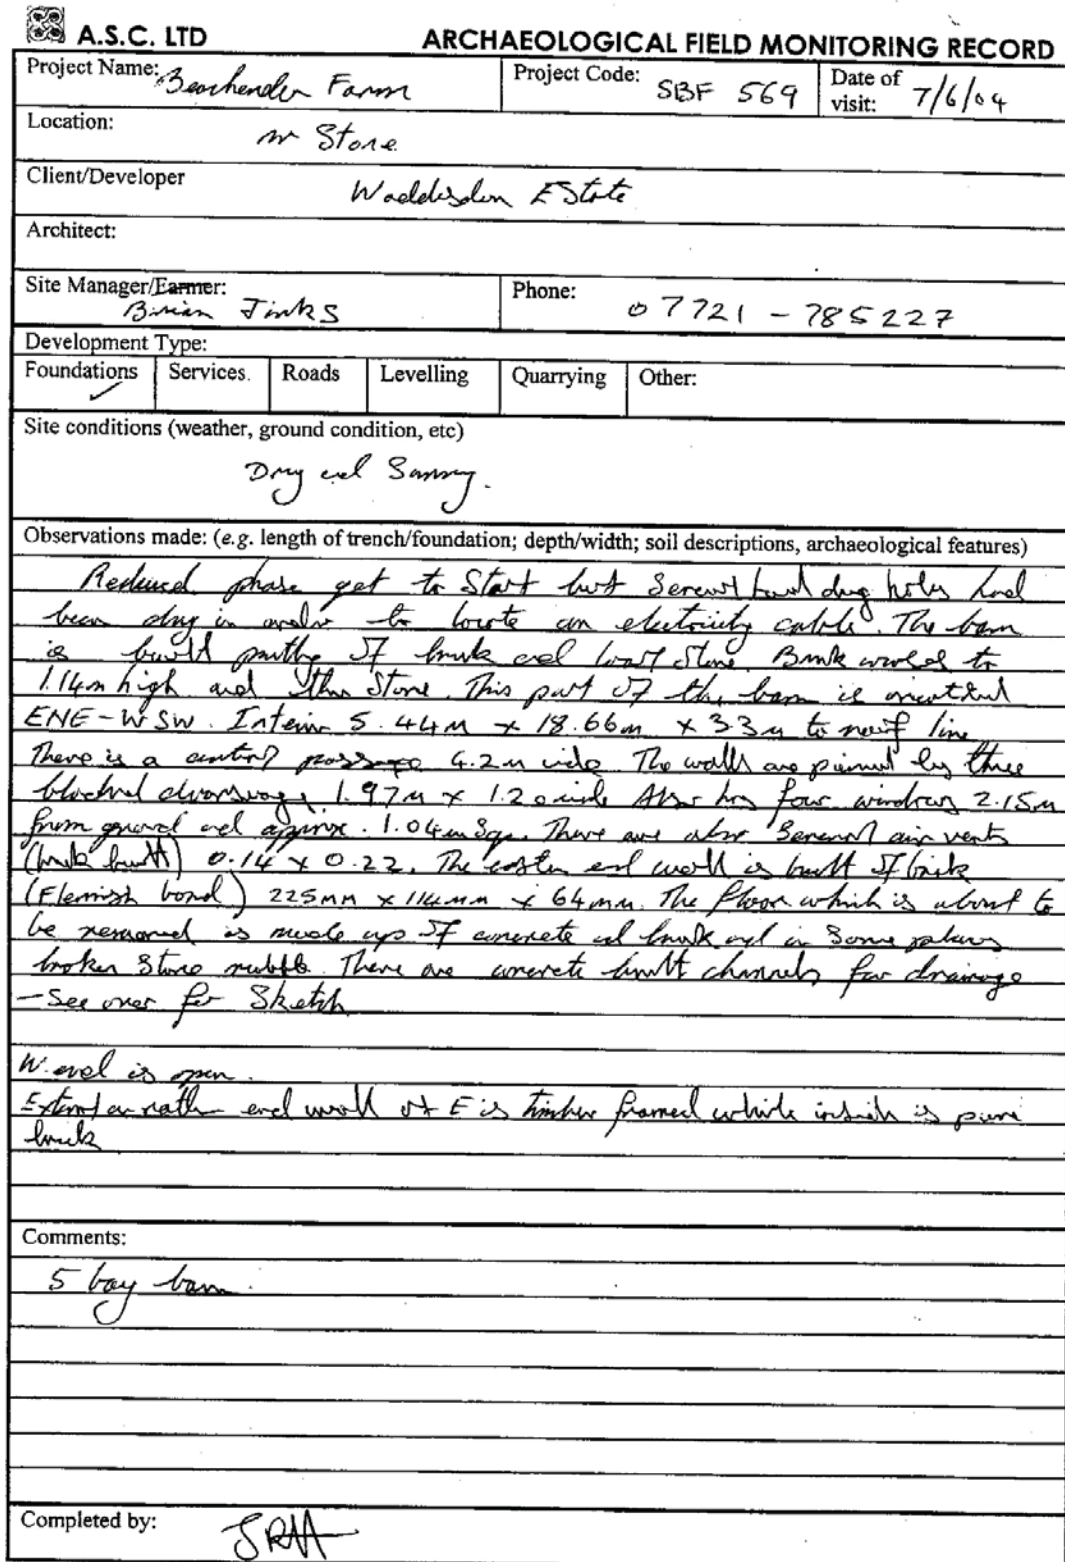 A.S.C. LTD ARCHAEOLOGICAL FIELD MONITORING RECORD
Project Name: Beachendon Farm Project Code: SBF 569 Date of visit: 7/6/04
Location: nr Stone
Client/Developer Waddesdon EState
Architect:
Site Manager/Farmer: Brian Jinks Phone: 07721 - 785227
Development Type:
Foundations ✓ Services. Roads Levelling Quarrying Other:
Site conditions (weather, ground condition, etc)
Dry and Sunny.
Observations made: (e.g. length of trench/foundation; depth/width; soil descriptions, archaeological features)
Reduced phase yet to Start but Several hand dug holes had
been dug in order to locate an electricity cable. The barn
is built partly of brick and Stone. Brick to
1.14m high and then Stone. This part of the barn is orientated
ENE-WSW. Interior 5.44m x 18.66m x 3.3m to roof line
There is a central passage 4.2m wide The walls are by three
blocked doorways, 1.97m x 1.20 wide Also has four windows 2.15m
from ground and approx. 1.04m Sqr. There are also Several air vents
(brick built) 0.14 x 0.22. The eastern end wall is built of brick
(Flemish bond) 225mm x 114mm x 64mm. The floor which is about to
be removed is made up of concrete and brick and in Some places
broken Stone rubble. There are concrete built channels for drainage
- See over for Sketch
W. end is open.
end wall at E is timber framed while inside is pure
brick
Comments:
5 bay barn.
Completed by: JRH